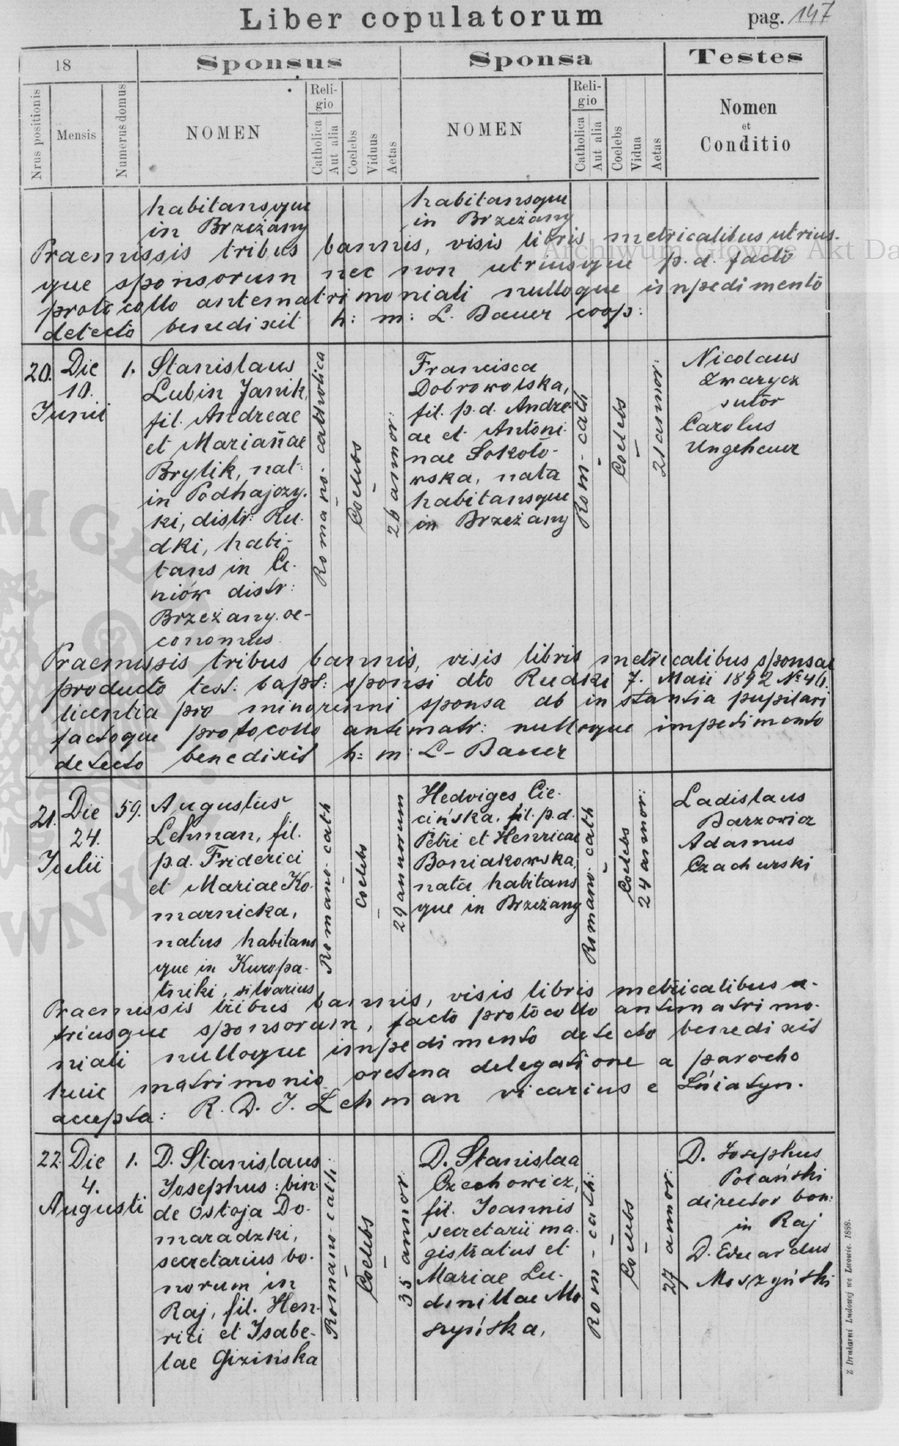 Liber copulatorum
pag. 147
18
Sponsus
Sponsa
Testes
Nrus positionis
Mensis
Numerus domus
NOMEN
Religio
Catholica
Aut alia
Coelebs
Viduus
Aetas
NOMEN
Religio
Catholica
Aut alia
Coelebs
Vidua
Aetas
Nomen
et
Conditio
habitansque
in Brzeżany
habitansque
in Brzeżany
Praemissis tribus bannis, visis libris metricalibus utrius-
que sponsorum nec non utriusque p. d. facto
protocollo antematrimoniali nulloque impedimento
detecto benedixit h: m: L. Bauer coop:
20.
Die
10.
Junii
1.
Stanislaus
Lubin Janik,
fil. Andreae
et Mariańae
Brylik, nat.
in Podhajczy-
ki, distr. Ru-
dki, habi-
tans in Ce-
niów distr:
Brzeżany. oe-
conomus.
Romano-catholica
Coelebs
26 annor:
Francisca
Dobrowolska,
fil. p. d. Andre-
ae et Antoni-
nae Sokoło-
wska, nata
habitansque
in Brzeżany
Rom-cath
Coelebs
21 annor:
Nicolaus
Zwarycz
sutor
Carolus
Ungeheuer
Praemissis tribus bannis, visis libris metricalibus sponsae
producto test. bapt: sponsi dto Rudki 7. Maii 1892 № 46
licentia pro minorenni sponsa ab instantia pupilari
factoque protocollo antematr: nulloque impedimento
detecto benedixit h: m: L- Bauer
21.
Die
24.
Julii
59.
Augustus
Lehman, fil.
p.d. Friderici
et Mariae Ko-
marnicka,
natus habitans
que in Kuropa-
tniki, silvarius
Romano-cath
coelebs
29 annorum
Hedviges Cie-
cińska, fil. p.d.
Petri et Henricae
Boniakowska,
nata habitans
que in Brzeżany
Romano-cath
Coelebs
24 annor:
Ladislaus
Barzowicz
Adamus
Czachurski
Praemissis tribus bannis, visis libris metricalibus u-
triusque sponsorum, facto protocollo antematrimo-
niali nulloque impedimento detecto benedixit
huic matrimonio oretena delegatione a parocho
accepta: R. D. J. Lehman vicarius e Śniatyn.
22.
Die
4.
Augusti
1.
D. Stanislaus
Josephus: bin:
de Ostoja Do-
maradzki,
secretarius bo-
norum in
Raj, fil. Hen-
rici et Isabe-
lae Gizińska
Romano-cath:
Coelebs
35 annor
D. Stanislaa
Czechowicz,
fil. Joannis
secretarii ma-
gistratus et
Mariae Lu-
dmillae Mo-
szyńska,
Rom-cath:
Coelebs
27 annor:
D. Josephus
Polański
director bon:
in Raj
D. Eduardus
Moszyński
Z Drukarni Ludowej we Lwowie. 1888.
Archiwum Główne Akt Da